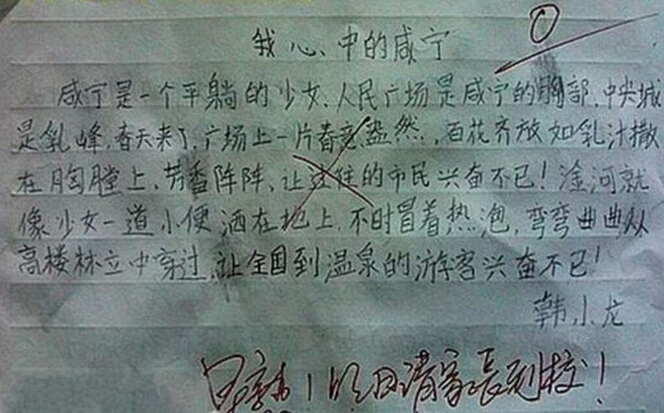 0
我心中的咸宁
咸宁是一个平躺的少女、人民广场是咸宁的胸部,中央城
是乳峰,春天来了,广场上一片春意盎然,百花齐放如乳汁撒
在胸膛上、芳香阵阵、让过往的市民兴奋不已!淦河就
像少女一道小便洒在地上,不时冒着热泡,弯弯曲曲从
高楼林立中穿过,让全国到温泉的游客兴奋不已!
韩小龙
早熟!明日请家长到校!